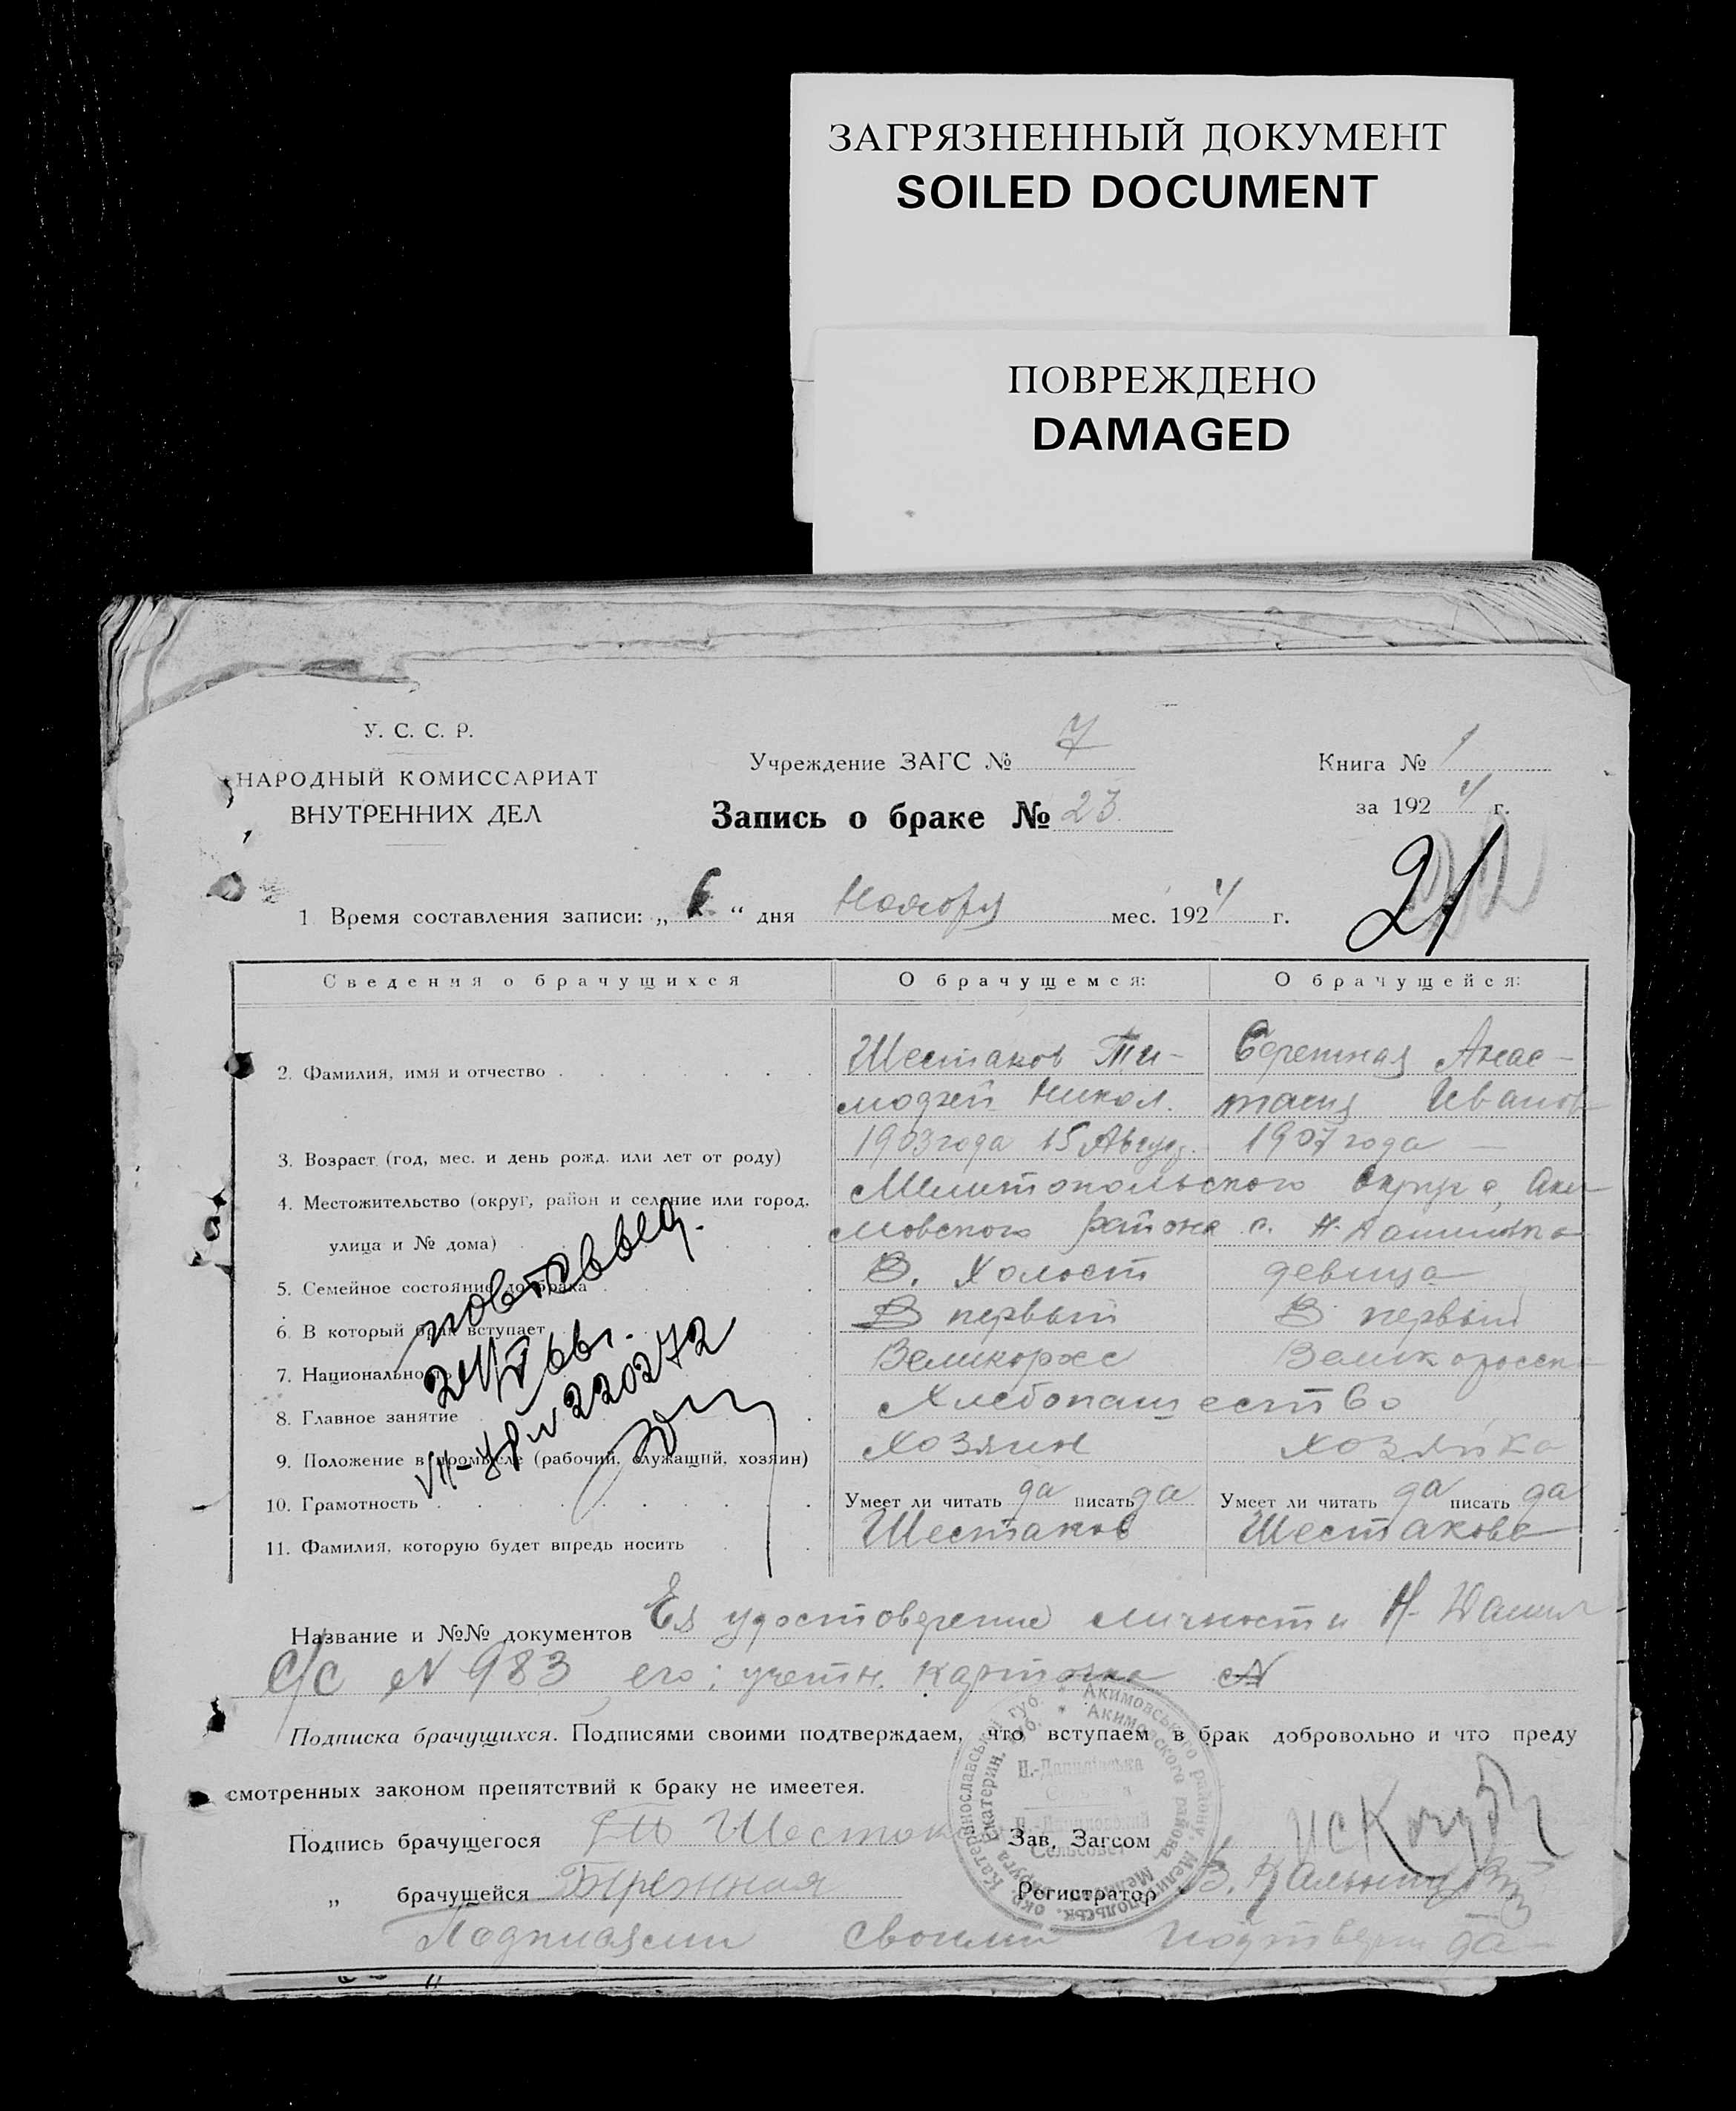 ЗАГРЯЗНЕННЫЙ ДОКУМЕНТ
SOILED DOCUMENT
ПОВРЕЖДЕНО
DAMAGED
У. С. С. Р.
НАРОДНЫЙ КОМИССАРИАТ
ВНУТРЕННИХ ДЕЛ
Учреждение ЗАГС № 7
Запись о браке № 23
Книга № 1
за 1924 г.
21
1 Время составления записи: „ 6 “ дня Ноября мес. 1924 г.
Сведения о брачущихся О брачущемся: О брачущейся:
2. Фамилия, имя и отчество Шестаков Ти- Анас-
мофей Никол. тасия Иванов
3. Возраст (год, мес. и день рожд. или лет от роду) 1903 года 15 Август. 1907 года —
4. Местожительство (округ, район и селение или город, Мелитопольского округа, Аки-
улица и № дома) мовского района с. Н. Даниловка
5. Семейное состояние до брака В. Холост девица
6. В который брак вступает В первый В первый
7. Национальность Великорос Великоросск
8. Главное занятие Хлебопашество
9. Положение в промысле (рабочий, служащий, хозяин) Хозяин хозяйка
10. Грамотность Умеет ли читать да писать да Умеет ли читать да писать да
11. Фамилия, которую будет впредь носить Шестаков Шестакова
повт выд.
24/V 66г.
VII-ЯР № 220272
Название и №№ документов Ея удостоверение личности Н-Данил
С/С № 983 его; учетн. карточка №
Подписка брачущихся. Подписями своими подтверждаем, что вступаем в брак добровольно и что преду
смотренных законом препятствий к браку не имеетея.
Подпись брачущегося Шестаков Зав. Загсом
„ брачущейся Бережная Регистратор В.
Подписями своими
Катеринославської губ. * Акимовського району, Мелітопольськ. окр.
Екатерин. губ. * Акимовского района, Мелитоп. округа
Н.-Данилівська
Н.-Даниловский
Сельсовет